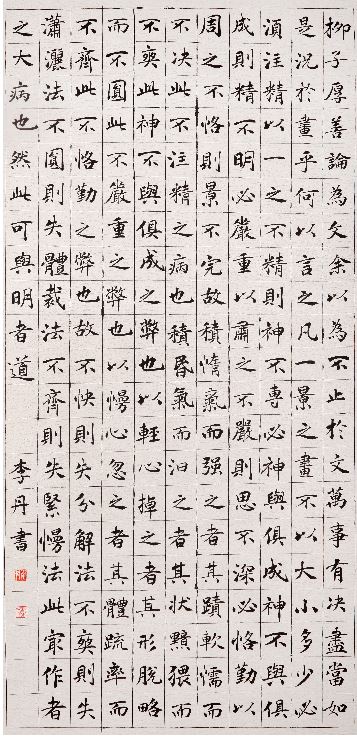 柳子厚善論為文余以為不止於文萬事有决盡當如
是況於畫乎何以言之凡一景之畫不以大小多少必
湏注精以一之不精則神不專必神與俱成神不與俱
成則精不明必嚴重以肅之不嚴則思不深必恪勤以
周之不恪則景不完故積惰氣而强之者其蹟軟懦而
不决此不注精之病也積昬氣而汩之者其狀黯猥而
不爽此神不與俱成之弊也以輕心掉之者其形脫略
而不圓此不嚴重之弊也以慢心忽之者其體疏率而
不齊此不恪勤之弊也故不快則失分解法不爽則失
瀟灑法不圓則失體裁法不齊則失緊慢法此冣作者
之大病也然此可與明者道 李丹書